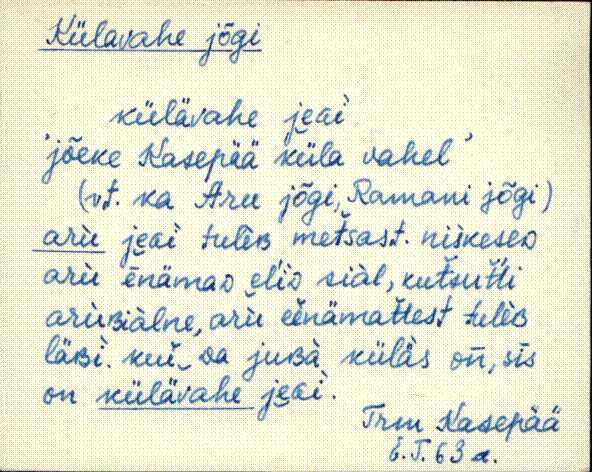 Külavahe jõgi
külävahe jeɢi
'jõeke Kasepää küla vahel'
(vt. ka Aru jõgi, Ramani jõgi)
aru jeɢi tuleʙ metsast. niskeseᴅ
aru enämaᴅ eliᴅ siäl, kutsutti
aruʙiälne, aru einämattest tuleʙ
läʙi. kui ᴅa juʙa küläs on, sis
on külävahe jeɢi.
Trm Kasepää
E.T. 63 a.